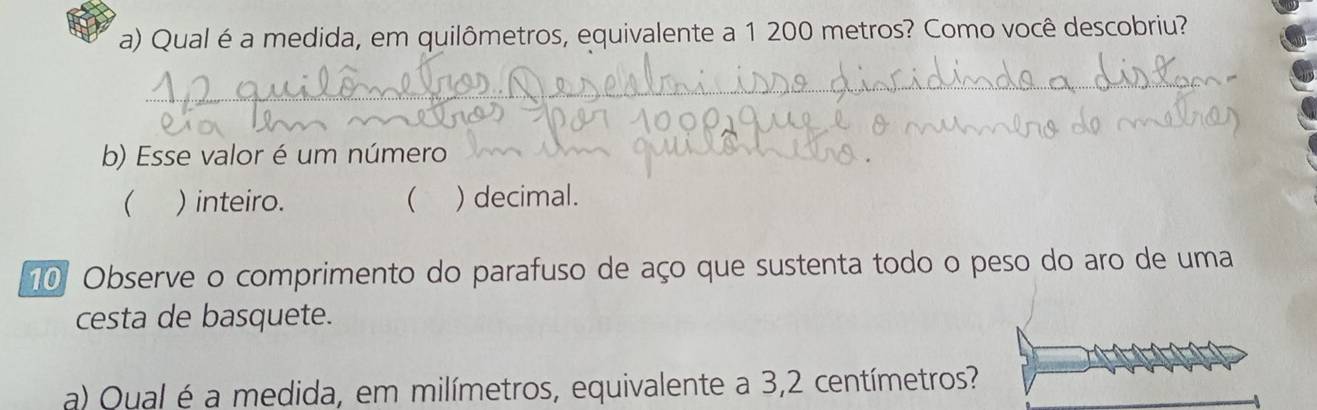 a) Qual é a medida, em quilômetros, equivalente a 1 200 metros? Como você descobriu?
1,2 quilômetros. Descobri isso dividindo a distan-
cia em metros por 1000, que é o número de metros
b) Esse valor é um número em um quilômetro.
( ) inteiro. ( ) decimal.
10 Observe o comprimento do parafuso de aço que sustenta todo o peso do aro de uma
cesta de basquete.
a) Qual é a medida, em milímetros, equivalente a 3,2 centímetros?